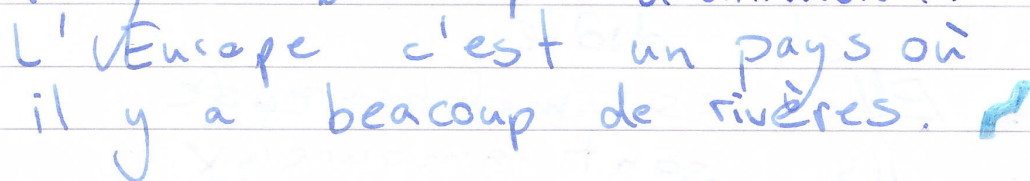 L'Europe c'est un pays où
il y a beacoup de rivères.